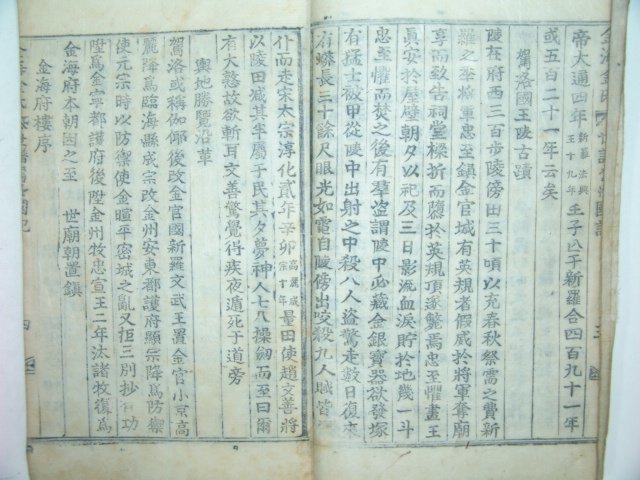 帝大通四年新羅法興王十九年壬子入于新羅合四百九十一年
或五百二十一年云矣
駕洛國王陵古蹟
陵在府西三百步陵傍田三十頃以充春秋祭需之費新
羅之季將軍忠至鎮金官城有英規者假威於將軍奪廟
享而致告祠堂樑折而隕於英規頂遂斃焉忠懼畫王
眞安於壁壁朝夕以祀及三日影流血淚貯於地幾一斗
忠至懼而焚之後有羣盜謂陵中必藏金銀寶器欲發塚
有猛士被甲從陵中出射之中殺八人盜驚走數日復來
有蟒長三十餘尺眼光如電自陵傍出咬殺九人賊皆
仆而走宋太宗淳化貳年辛卯高麗成宗十年量田使趙文善將
以陵田减其半屬于民其夕夢神人七八操劒而至曰爾
有大憝故欲斬耳文善驚覺得疾夜遁死于道旁
輿地勝覽沿革
駕洛或稱伽倻後改金官國新羅文武王置金官小京高
麗降爲臨海縣成宗改金州安東都護府顯宗降爲防禦
使元宗時以防禦使金晅平密城之亂又拒三別抄有功
陞爲金寧都護府後陞金州牧忠宣王二年汰諸牧復爲
金海府本朝因之至 世廟朝置鎮
金海府樓序